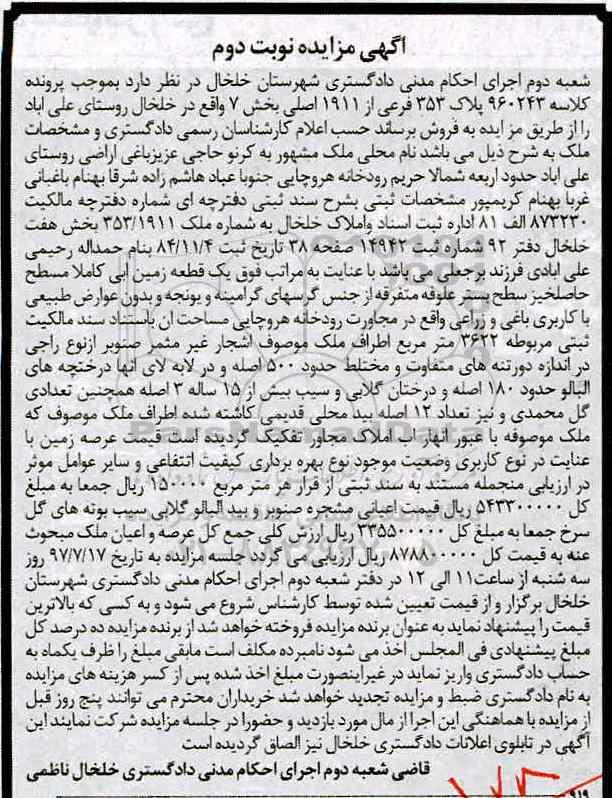 آگهی مزایده نوبت دوم
شعبه دوم اجرای احکام مدنی دادگستری شهرستان خلخال در نظر دارد بموجب پرونده
کلاسه ۹۶۰۲۴۳ پلاک ۳۵۳ فرعی از ۱۹۱۱ اصلی بخش ۷ واقع در خلخال روستای علی اباد
را از طریق مز ایده به فروش برساند حسب اعلام کارشناسان رسمی دادگستری و مشخصات
ملک به شرح ذیل می باشد نام محلی ملک مشهور به کرنو حاجی عزیزباغی اراضی روستای
علی اباد حدود اربعه شمالا حریم رودخانه هروچایی جنوبا عباد هاشم زاده شرقا بهنام باغبانی
غربا بهنام کریمپور مشخصات ثبتی بشرح سند ثبتی دفترچه ای شماره دفترچه مالکیت
۸۷۳۲۳۰ الف ۸۱ اداره ثبت اسناد واملاک خلخال به شماره ملک ۳۵۳/۱۹۱۱ بخش هفت
خلخال دفتر ۹۲ شماره ثبت ۱۴۹۴۲ صفحه ۳۸ تاریخ ثبت ۸۴/۱۱/۴ بنام حمداله رحیمی
علی ابادی فرزند برجعلی می باشد با عنایت به مراتب فوق یک قطعه زمین ابی کاملا مسطح
حاصلخیز سطح بستر علوفه متفرقه از جنس گرسهای گرامینه و یونجه و بدون عوارض طبیعی
با کاربری باغی و زراعی واقع در مجاورت رودخانه هروچایی مساحت ان باستناد سند مالکیت
ثبتی مربوطه ۳۶۲۲ متر مربع اطراف ملک موصوف اشجار غیر مثمر صنوبر ازنوع راجی
در اندازه دورتنه های متفاوت و مختلط حدود ۵۰۰ اصله و در لابه لای آنها درختچه های
البالو حدود ۱۸۰ اصله و درختان گلابی و سیب بیش از ۱۵ ساله ۳ اصله همچنین تعدادی
گل محمدی و نیز تعداد ۱۲ اصله بید محلی قدیمی کاشته شده اطراف ملک موصوف که
ملک موصوفه با عبور انهار اب املاک مجاور تفکیک گردیده است قیمت عرصه زمین با
عنایت در نوع کاربری وضعیت موجود نوع بهره برداری کیفیت انتفاعی و سایر عوامل موثر
در ارزیابی منجمله مستند به سند ثبتی از قرار هر متر مربع ۱۵۰۰۰۰ ریال جمعا به مبلغ
کل ۵۴۳۳۰۰۰۰۰ ریال قیمت اعیانی مشجره صنوبر و بید البالو گلابی سیب بوته های گل
سرخ جمعا به مبلغ کل ۳۳۵۵۰۰۰۰۰ ریال ارزش کلی جمع کل عرصه و اعیان ملک مبحوث
عنه به قیمت کل ۸۷۸۸۰۰۰۰۰ ریال ارزیابی می گردد جلسه مزایده به تاریخ ۹۷/۷/۱۷ روز
سه شنبه از ساعت۱۱ الی ۱۲ در دفتر شعبه دوم اجرای احکام مدنی دادگستری شهرستان
خلخال برگزار و از قیمت تعیین شده توسط کارشناس شروع می شود و به کسی که بالاترین
قیمت را پیشنهاد نماید به عنوان برنده مزایده فروخته خواهد شد از برنده مزایده ده درصد کل
مبلغ پیشنهادی فی المجلس اخذ می شود نامبرده مکلف است مابقی مبلغ را ظرف یکماه به
حساب دادگستری واریز نماید در غیراینصورت مبلغ اخذ شده پس از کسر هزینه های مزایده
به نام دادگستری ضبط و مزایده تجدید خواهد شد خریداران محترم می توانند پنج روز قبل
از مزایده با هماهنگی این اجرا از مال مورد بازدید و حضورا در جلسه مزایده شرکت نمایند این
آگهی در تابلوی اعلانات دادگستری خلخال نیز الصاق گردیده است
قاضی شعبه دوم اجرای احکام مدنی دادگستری خلخال ناظمی
۹۱۹